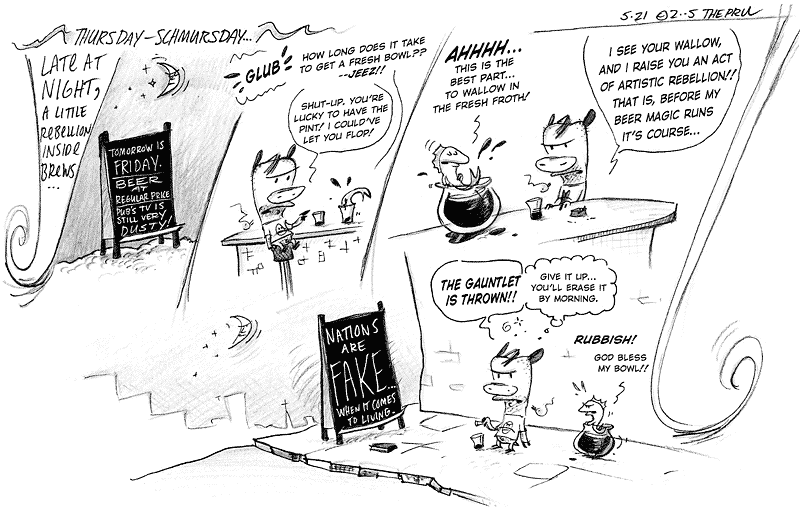 5·21 ©2··5 THEPRU
THURSDAY-SCHMURSDAY...
LATE AT
NIGHT,
A LITTLE
REBELLION
INSIDE
BREWS
...
TOMORROW IS
FRIDAY.
BEER
AT
REGULAR PRICE
PUB'S TV IS
STILL VERY
DUSTY!
GLUB
HOW LONG DOES IT TAKE
TO GET A FRESH BOWL??
--JEEZ!!
SHUT-UP. YOU'RE
LUCKY TO HAVE THE
PINT! I COULD'VE
LET YOU FLOP!
AHHHH...
THIS IS THE
BEST PART...
TO WALLOW IN
THE FRESH FROTH!
I SEE YOUR WALLOW,
AND I RAISE YOU AN ACT
OF ARTISTIC REBELLION!!
THAT IS, BEFORE MY
BEER MAGIC RUNS
IT'S COURSE...
NATIONS
ARE
FAKE...
WHEN IT COMES
TO LIVING.
THE GAUNTLET
IS THROWN!!
GIVE IT UP...
YOU'LL ERASE IT
BY MORNING.
RUBBISH!
GOD BLESS
MY BOWL!!